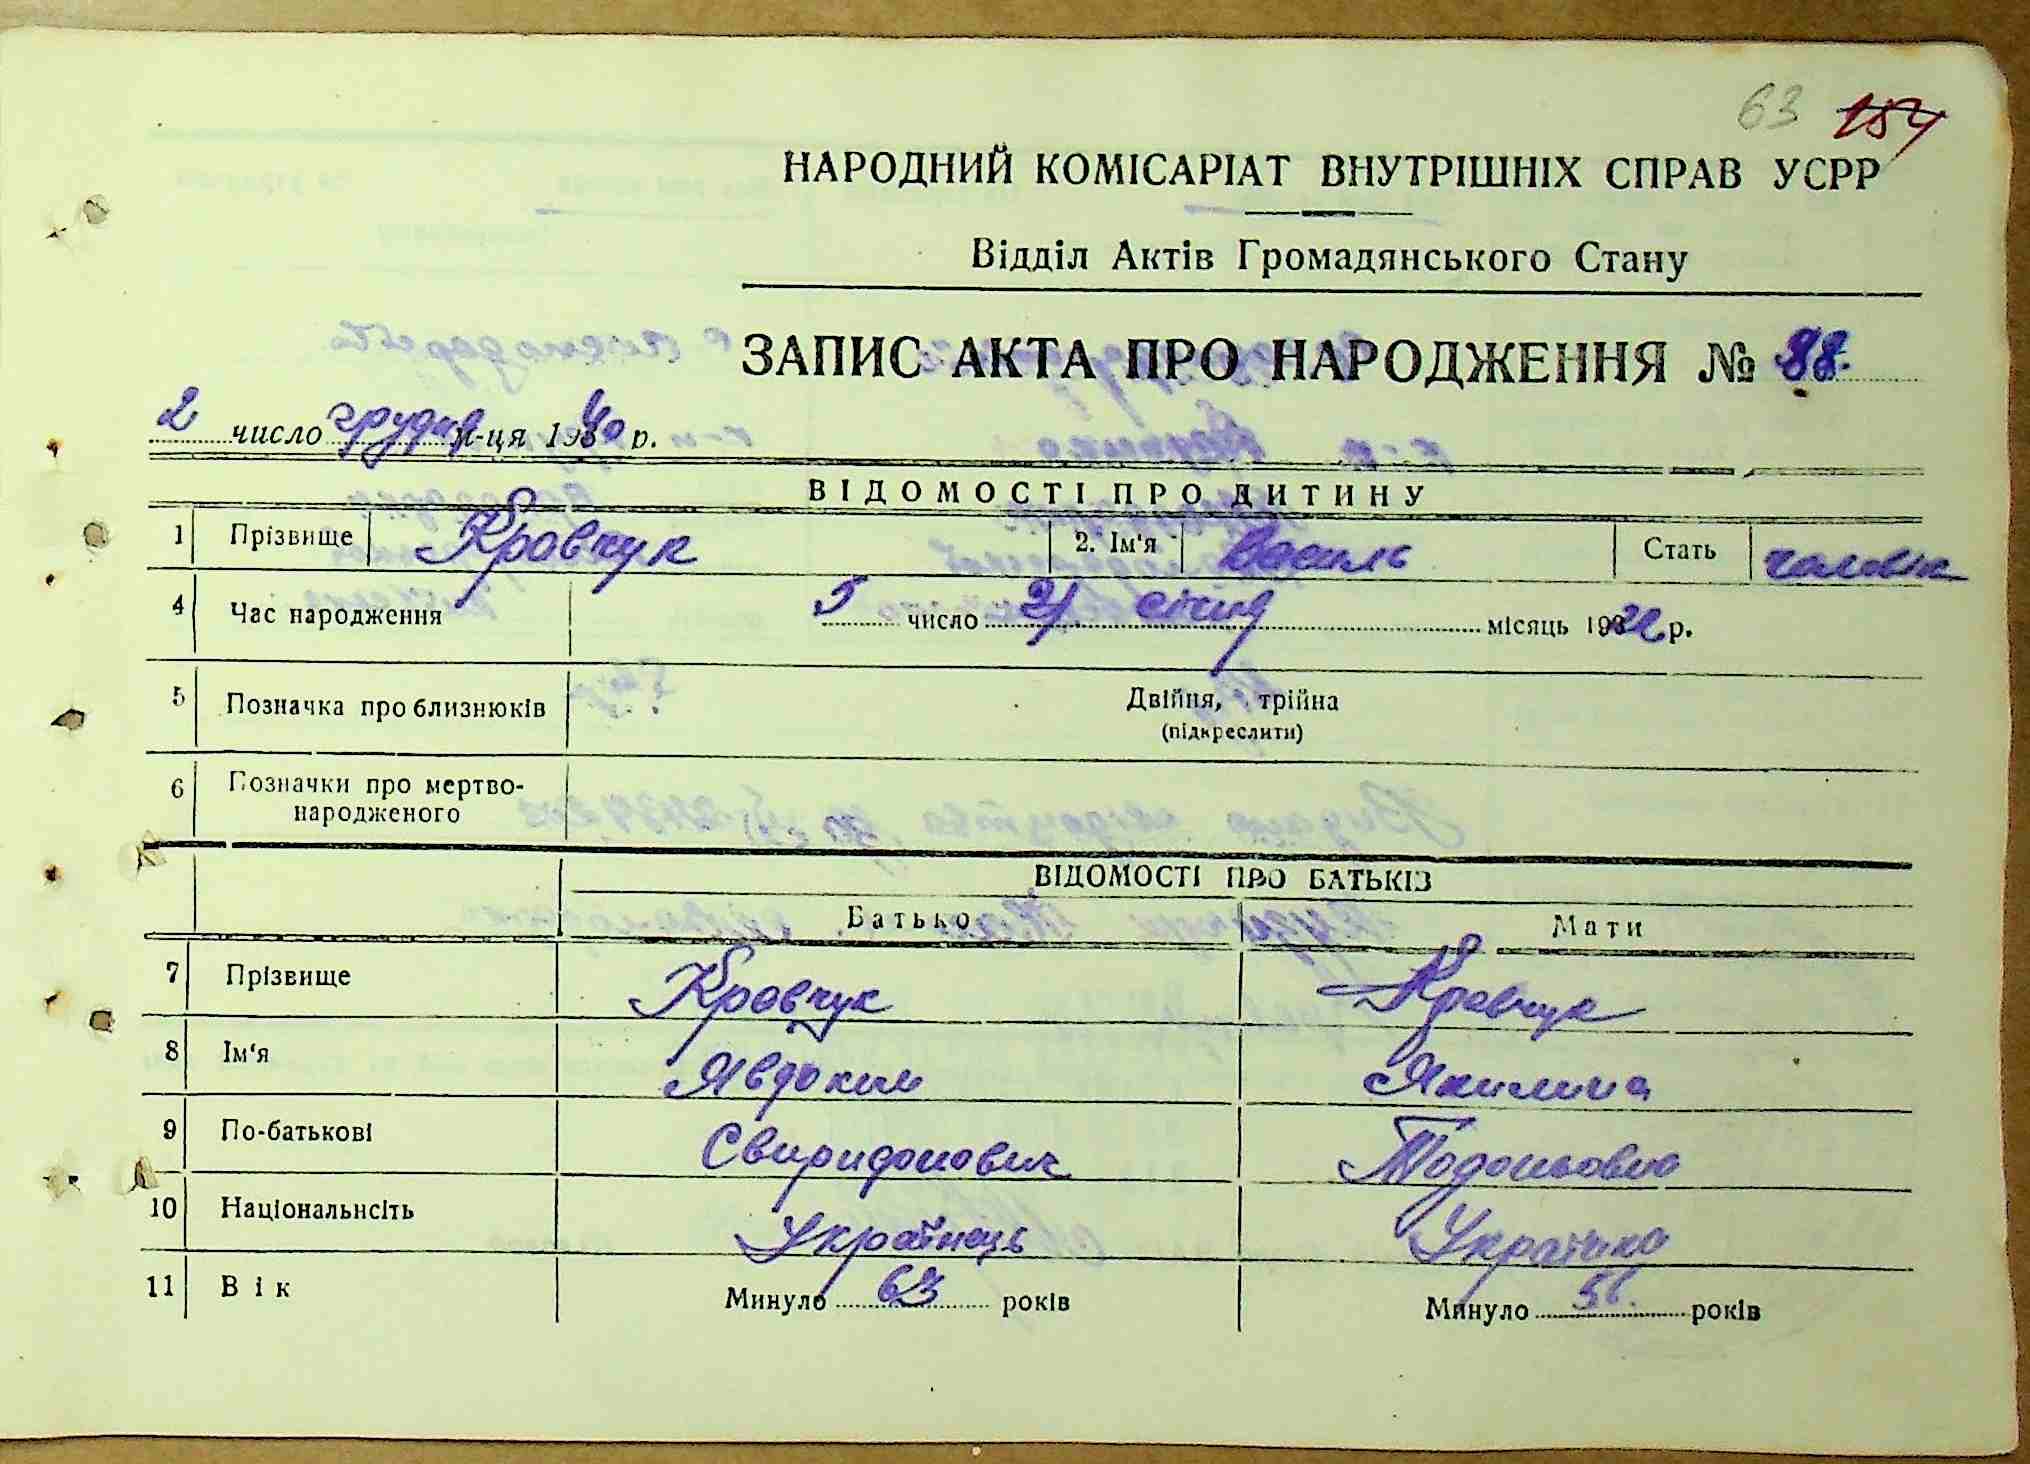 63 154
НАРОДНИЙ КОМІСАРІАТ ВНУТРІШНІХ СПРАВ УСРР
Відділ Актів Громадянського Стану
ЗАПИС АКТА ПРО НАРОДЖЕННЯ № 88.
2 число грудня м-ця 1940 р.
ВІДОМОСТІ ПРО ДИТИНУ
1 Прізвище Кровчук 2. Ім'я Василь Стать чоловік
4 Час народження 5 число січня місяць 1922 р.
5 Позначка про близнюків Двійня, трійна
(підкреслити)
6 Позначки про мертво-
народженого
ВІДОМОСТІ ПРО БАТЬКІВ
Батько Мати
7 Прізвище Кровчук Кровчук
8 Ім'я Явдоким Якилина
9 По-батькові Свиридонович Тодосьовно
10 Національнсіть Українець Українко
11 Вік Минуло 63 років Минуло 56. років